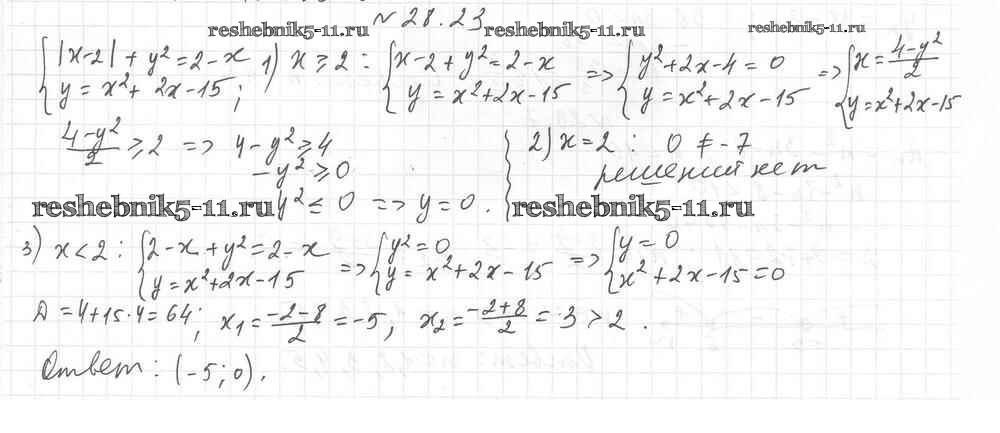 № 28.23
reshebnik5-11.ru reshebnik5-11.ru reshebnik5-11.ru
{ |x-2| + y² = 2 - x
y = x² + 2x - 15 ;
1) x ≥ 2 : { x - 2 + y² = 2 - x
y = x² + 2x - 15
=> { y² + 2x - 4 = 0
y = x² + 2x - 15
=> { x = (4-y²)/2
y = x² + 2x - 15
(4-y²)/2 ≥ 2 => 4 - y² ≥ 4
- y² ≥ 0
y² ≤ 0 => y = 0 .
2) x = 2 : 0 ≠ - 7
решений нет
reshebnik5-11.ru reshebnik5-11.ru
3) x < 2 : { 2 - x + y² = 2 - x
y = x² + 2x - 15
=> { y² = 0
y = x² + 2x - 15
=> { y = 0
x² + 2x - 15 = 0
D = 4 + 15·4 = 64 ; x₁ = (-2-8)/2 = -5 ; x₂ = (-2+8)/2 = 3 > 2 .
Ответ: (-5 ; 0) .